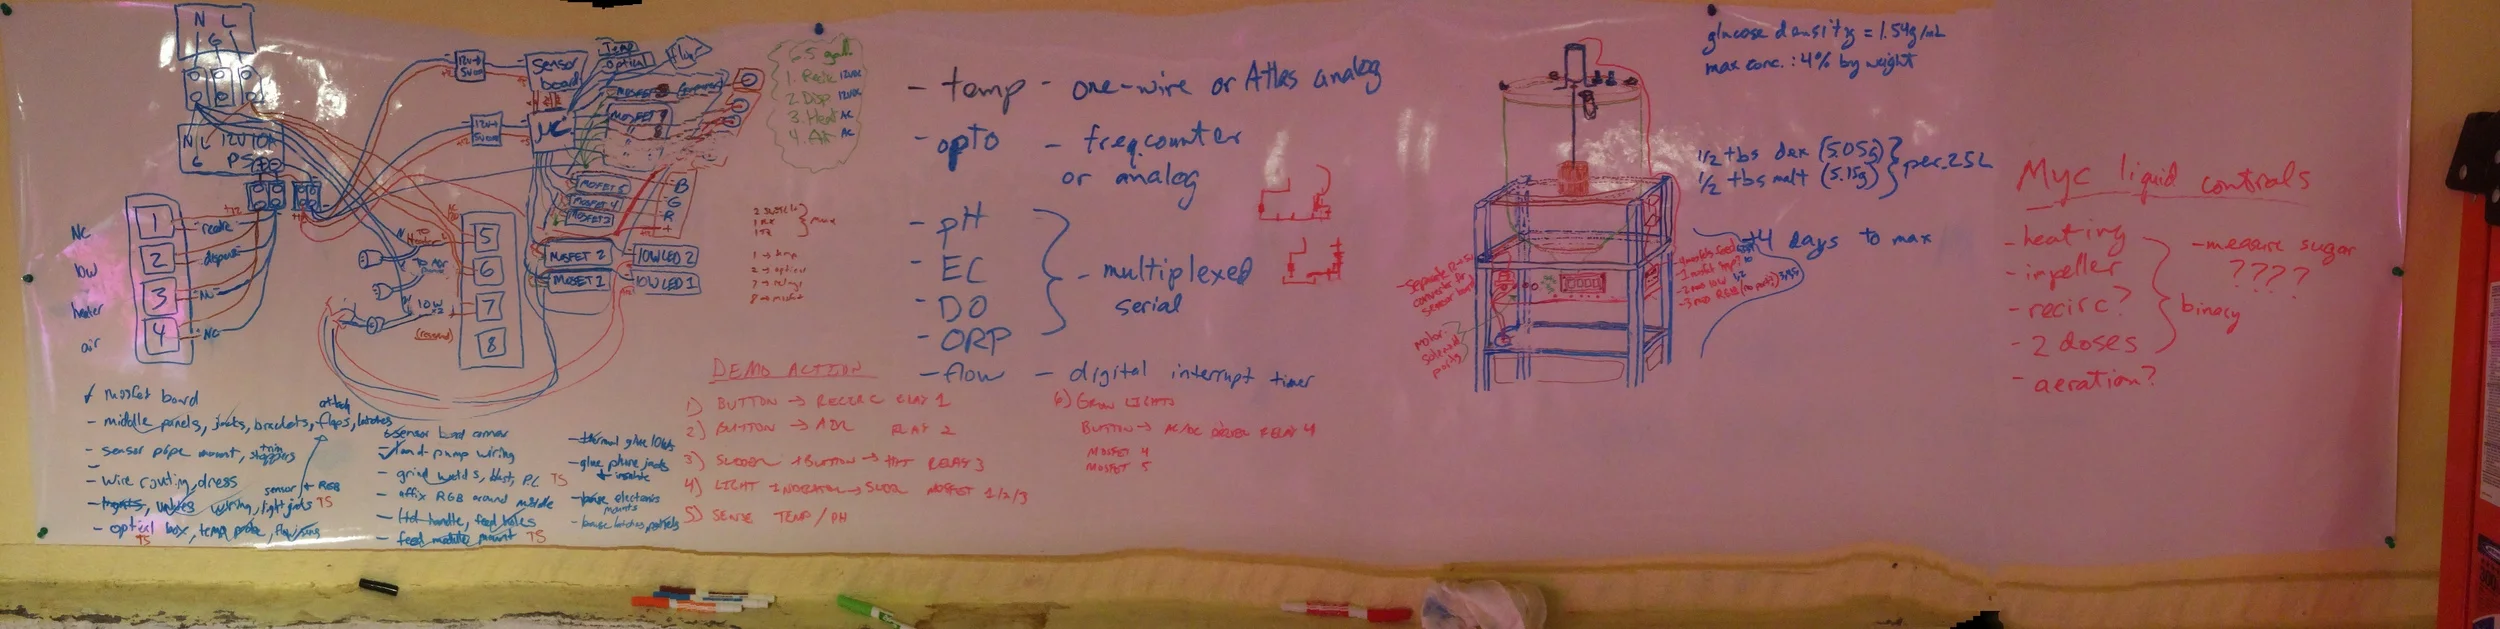 N L
G
N L 12V 10A
G PS
12V→
5VDC
12V→
5VDC
Sensor
board
μC
Temp
Optical
flow
MOSFET 5
MOSFET 4
MOSFET 3
B
G
R
+
MOSFET 2
MOSFET 1
10W LED 2
10W LED 1
6.5 gall.
1. Recirc 12VDC
2. Disp 12VDC
3. Heat AC
4. Air AC
NC
low
heater
air
1
2
3
4
recirc
dispense
NC
NC
5
6
7
8
To
Heater
To Air
Pump
10W
x2
(reserved)
1 → temp
2 → optical
7 → relays
8 → mosfet
✓ mosfet board
- middle panels, jacks, brackets, flaps, latches
attach
- sensor pipe mount, stoppers
trim
- wire routing, dress
sensor + RGB
- valves wiring, light jacks TS
- optical box, temp probe, flow
TS
sensor board connor
✓ load-pump wiring
- grind welds, blast, P.C. TS
- affix RGB around middle
- Lid handle, feed holes
- feed module mount TS
- thermal glue 10W
- glue phone jacks
+ insulate
- base electronics
mounts
- base latches, panels
DEMO ACTION
1) BUTTON → RECIRC RLAY 1
2) BUTTON → AIR RLAY 2
3) BUTTON → HT RELAY 3
4) LIGHT INDICATOR → MOSFET 1/2/3
5) SENSE TEMP/PH
6) GROW LIGHTS
BUTTON → AC/DC DRIVER RELAY 4
MOSFET 4
MOSFET 5
- temp - one-wire or Atlas analog
- opto - freq. counter
or analog
- pH
- EC
- DO
- ORP
- multiplexed
serial
- flow - digital interrupt timer
glucose density = 1.54g/mL
max conc. : 4% by weight
1/2 tbs dex (5.05g)
1/2 tbs malt (5.15g)
per .25L
4 days to max
- separate
converter for
sensor board
Motor
Solenoid
ports
Myc liquid controls
- heating
- impeller
- recirc?
- 2 doses
- aeration?
binary
- measure sugar
????